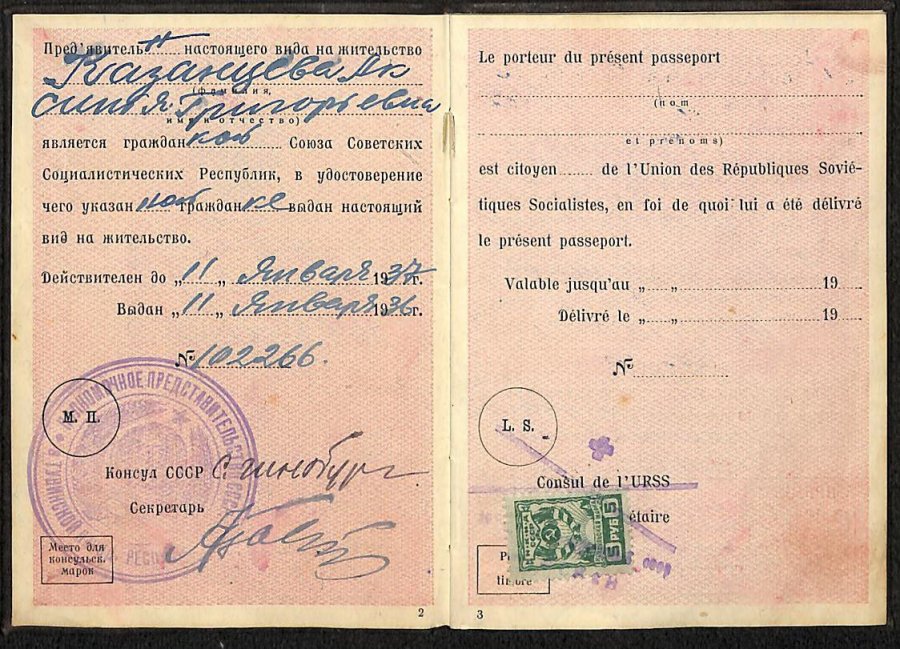 Пред'явитель .... настоящего вида на жительство
Казанцева Ак
(фамилия,
синия Григорьевна
имя и отчество)
является гражданкой Союза Советских
Социалистических Республик, в удостоверение
чего указанной гражданке выдан настоящий
вид на жительство.
Действителен до „11„ Января 1937г.
Выдан „11„ Января 1936г.
№ 102266.
ПОЛНОМОЧНОЕ ПРЕДСТАВИТЕЛЬСТВО
М. П.
Консул СССР
Секретарь
Место для
консульск.
марок
2
Le porteur du présent passeport
(nom
et prénoms)
est citoyen........ de l'Union des Républiques Sovié-
tiques Socialistes, en foi de quoi lui a été délivré
le présent passeport.
Valable jusqu'au „......„ 19.....
Délivré le „......„ 19.....
№
L. S.
Consul de l'URSS
étaire
5 РУБ 5
timbre
3